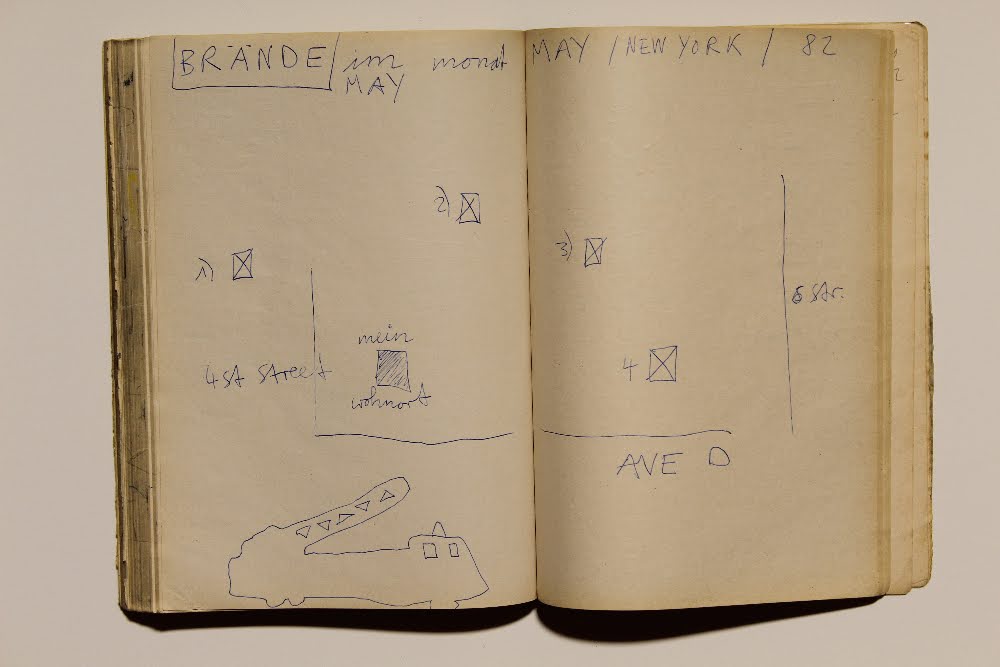 BRÄNDE im monat MAY / NEW YORK / 82
MAY
2)
3)
1)
6 Str.
mein
4
4st Street
wohnort
AVE D